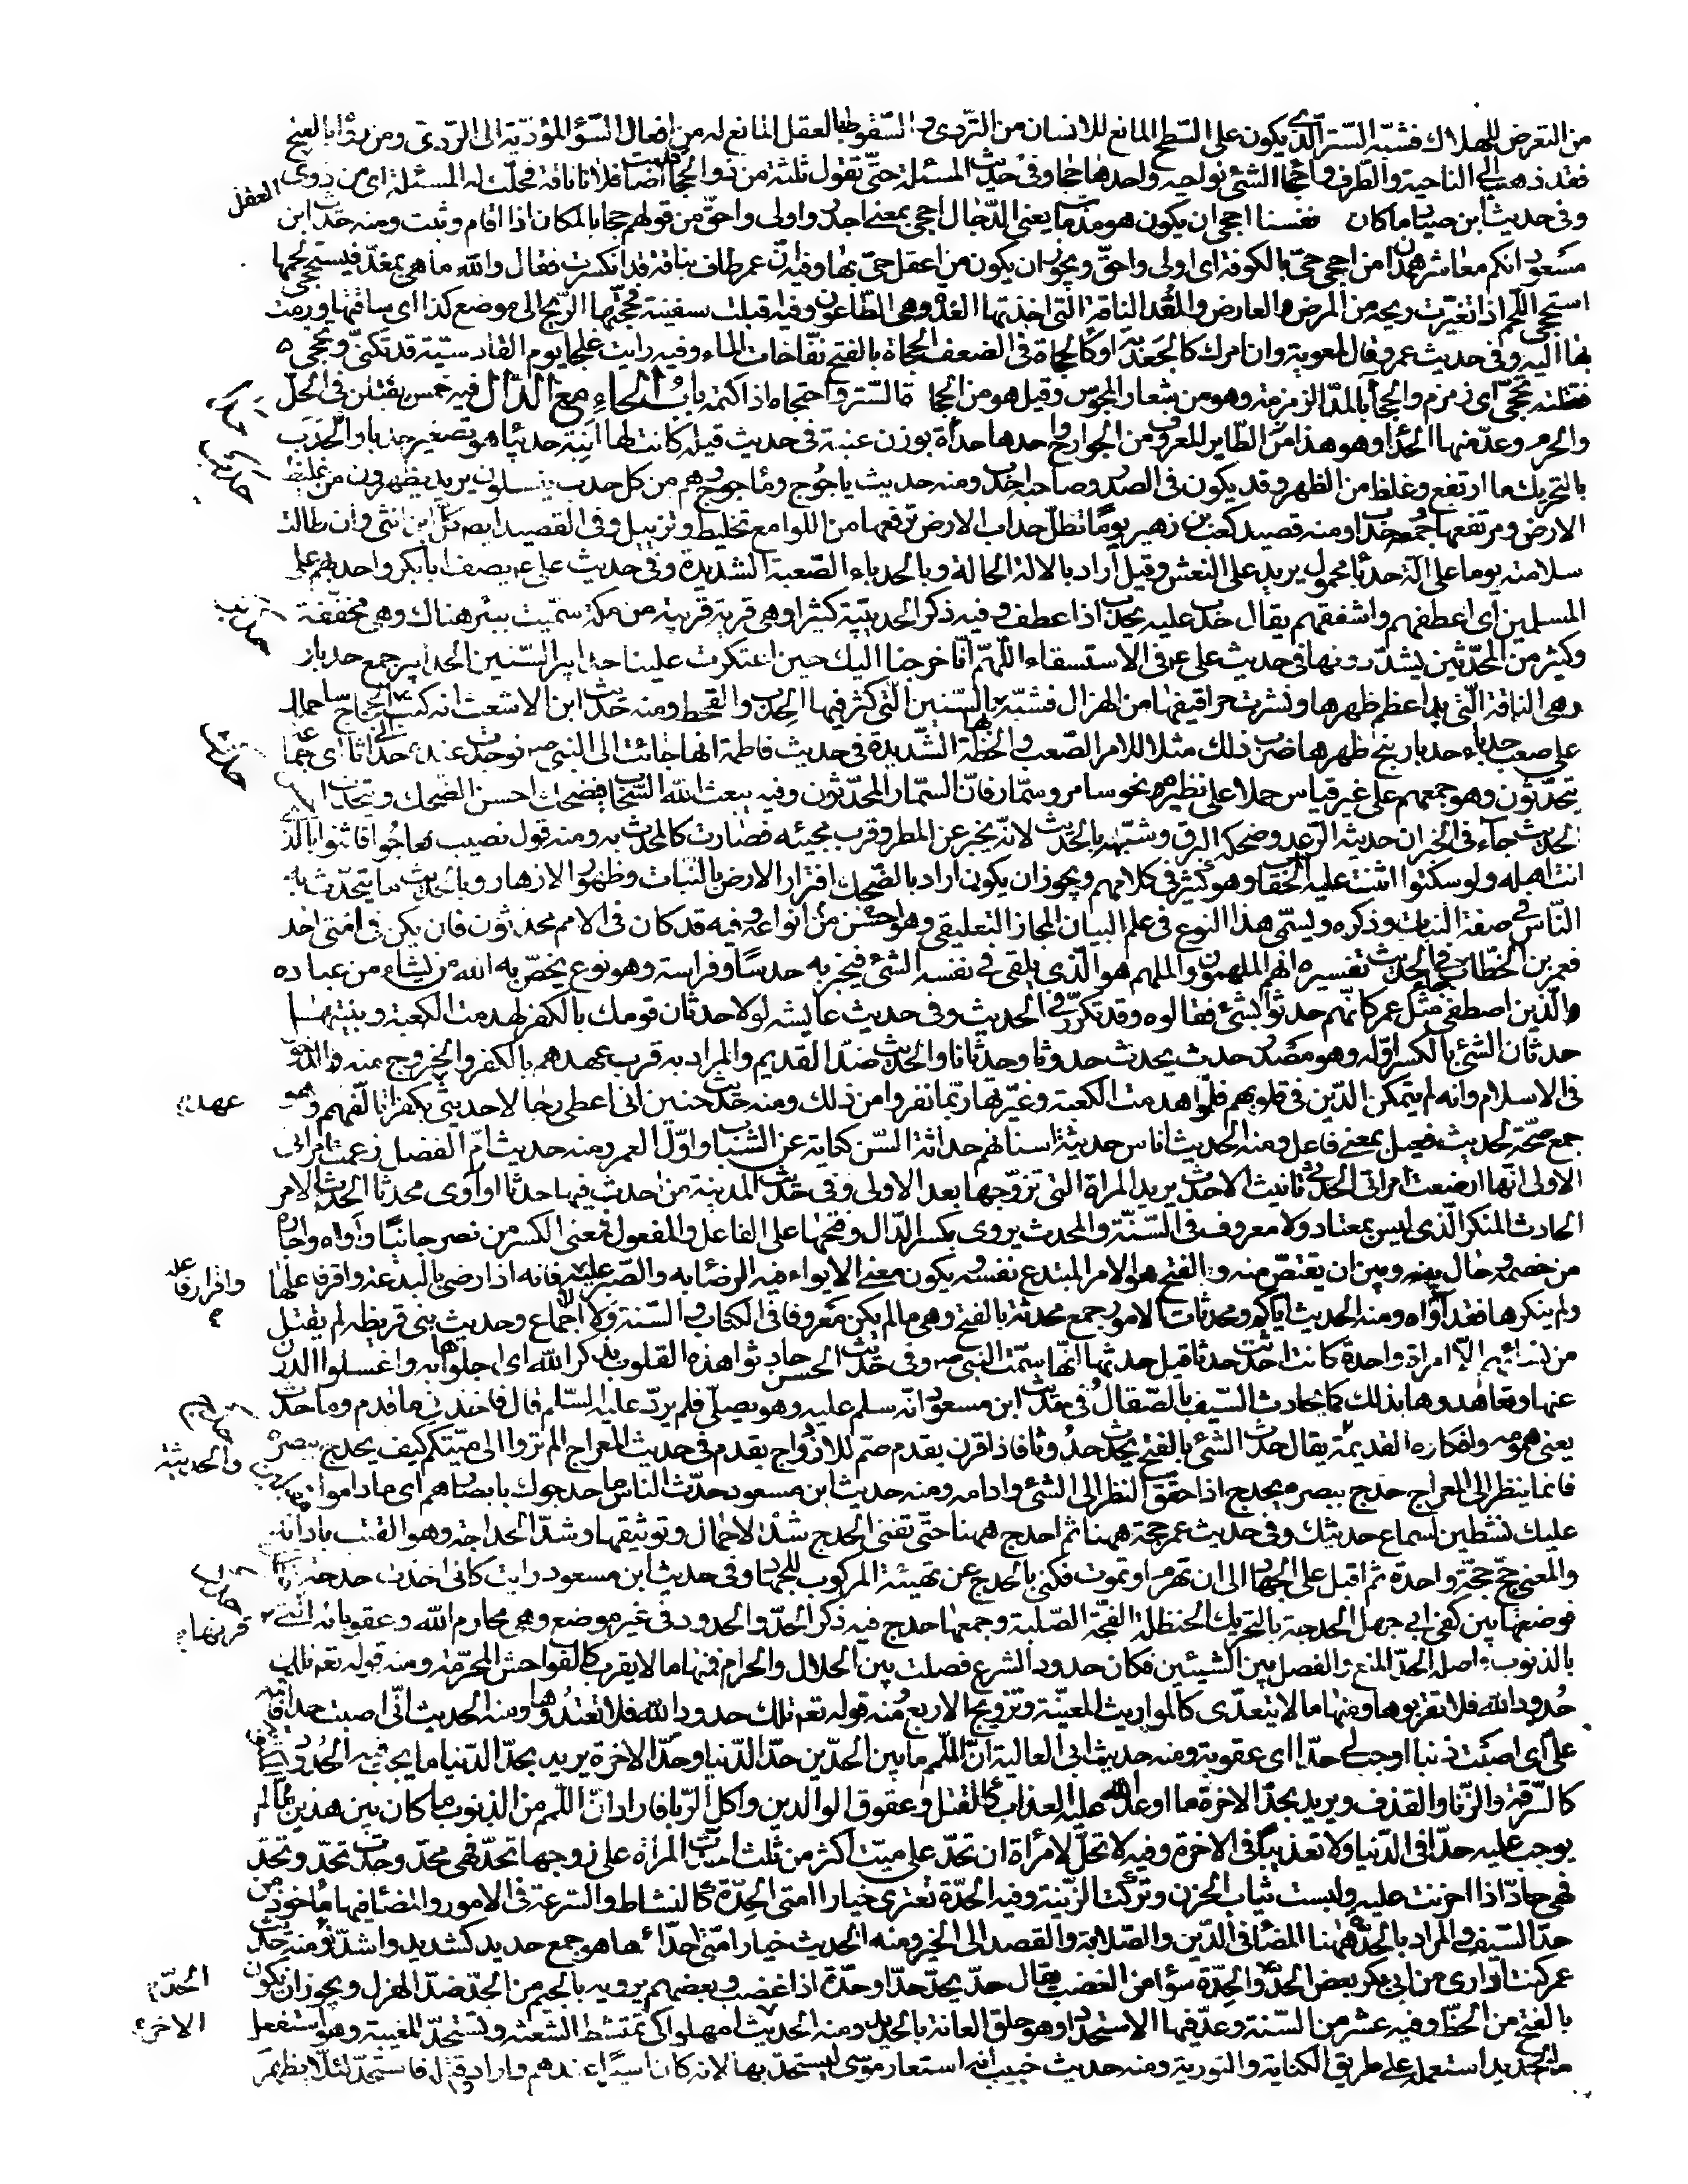 من التعرض للهلاك فشبه الستر الذي يكون على السطح المانع للانسان من التردي والسقوط بالعقل المانع له من افعال السوء المؤدية الى الردى ومن رواه بالفتح
فقد ذهب الى الناحية والطرف واحجاء الشئ نواحيه واحدها حجا وفى حديث المسئلة حتى تقول ثلثة من ذوى الحجا قد اصابت فلانا فاقة فحلت له المسئلة اى من ذوى العقل
وفى حديث ابن صياد ما كان فى نفسنا احجى ان يكون هو مذ مات يعنى الدجال احجى بمعنى اجدر واولى واحق من قولهم حجا بالمكان اذا اقام وثبت ومنه حديث ابن
مسعود انكم معاشر همدان من احجى حى بالكوفة اى اولى واحق ويجوز ان يكون من اعقل حى بها وفيه ان عمر طاف بناقة قد انكسرت فقال والله ما هى بمغد فيستحجى لحمها
استحجى اللحم اذا تغيرت ريحه من المرض العارض والمغد الناقة التى اخذتها الغدة وهى الطاعون وفيه اقبلت سفينة فحجتها الريح الى موضع كذا اى ساقتها ورمت
بها اليه وفى حديث عمرو قال لمعوية وان امرك كالجعدبة او كالحجاة فى الضعف الحجاة بالفتح نفاخات الماء وفيه رايت علجا يوم القادسية قد تكنى وتحجى
فقتلته تحجى اى زمزم والحجاء بالمد الزمزمة وهو من شعار المجوس وقيل هو من الحجاة الستر واحتجاه اذا كتمه باب الحاء مع الدال فيه خمس يقتلن فى الحل
والحرم وعد منها الحدأ وهو هذا الطاير المعروف من الجوارح واحدها حدأة بوزن عنبة فى حديث قيلة كانت لها ابنة حديباء هو تصغير حدباء والحدب
بالتحريك ما ارتفع وغلظ من الظهر وقد يكون فى الصدر وصاحبه احدب ومنه حديث ياجوج وماجوج وهم من كل حدب ينسلون يريد يظهرون من غليظ
الارض ومرتفعها وجمعه حداب ومنه قصيد كعب بن زهير يوما تظل حداب الارض ترفعها من اللوامع تخليط وتزييل وفى القصيد ايضا كل ابن انثى وان طالت
سلامته يوما على آلة حدباء محمول يريد على النعش وقيل اراد بالالة الحالة وبالحدباء الصعبة الشديدة وفى حديث على ع يصف ابا بكر واحدبهم على
المسلمين اى اعطفهم واشفقهم يقال حدب عليه يحدب اذا عطف وفيه ذكر الحديبية كثيرا وهى قرية قريبة من مكة سميت ببئر هناك وهى مخففة
وكثير من المحدثين يشددونها فى حديث على ع فى الاستسقاء اللهم انا خرجنا اليك حين اعتكرت علينا حدابير السنين الحدابير جمع حدبار
وهى الناقة التى بدا عظم ظهرها ونشزت حراقيفها من الهزال فشبه بها السنين التى كثر فيها الجدب والقحط ومنه حديث ابن الاشعث انه كتب الى الحجاج ساحملك
على صعب حدباء حدبار ينج ظهرها ضرب ذلك مثلا للامر الصعب والخطة الشديدة فى حديث فاطمة انها جائت الى النبى ص فوجدت عنده حداثا اى جماعة
يتحدثون وهو جمعهم على غير قياس حملا على نظيره نحو سامر وسمار فان السمار المحدثون وفيه يبعث الله السحاب فيضحك احسن الضحك ويتحدث احسن
الحديث جاء فى الخبر ان حديثه الرعد وضحكه البرق وشبهه بالحديث لانه يخبر عن المطر وقرب مجيئه فصارت كالمحدث به ومنه قول نصيب فعاجوا فاثنوا بالذى
انت اهله ولو سكتوا اثنت عليك الحقائب وهو كثير فى كلامهم ويجوز ان يكون اراد بالضحك افترار الارض بالنبات وظهور الازهار وبالحديث ما يتحدث به
الناس فى صفة النبات وذكره ويسمى هذا النوع فى علم البيان المجاز التعليقى وهو احسن من انواعه وفيه قد كان فى الامم محدثون فان يكن فى امتى احد
فعمر بن الخطاب جاء فى الحديث تفسيره انهم الملهمون والملهم هو الذى يلقى فى نفسه الشئ فيخبر به حدسا وفراسة وهو نوع يخص به الله من يشاء من عباده
الذين اصطفى مثل عمر كانهم حدثوا بشئ فقالوه وقد تكرر فى الحديث وفى حديث عايشة لولا حدثان قومك بالكفر لهدمت الكعبة وبنيتها
حدثان الشئ بالكسر اوله وهو مصدر حدث يحدث حدوثا وحدثانا والحديث ضد القديم والمراد به قرب عهدهم بالكفر والخروج منه والدخول
فى الاسلام وانه لم يتمكن الدين فى قلوبهم فلو هدمت الكعبة وغيرتها ربما نفروا من ذلك ومنه حديث حنين انى اعطى رجالا حديثى عهد بكفر اتالفهم وهو
جمع صحة لحديث فعيل بمعنى فاعل ومنه الحديث اناس حديثة اسنانهم حداثة السن كناية عن الشباب واول العمر ومنه حديث ام الفضل زعمت امراتى
الاولى انها ارضعت امراتى الحدثى تانيث الاحدث يريد المراة التى تزوجها بعد الاولى وفى حديث المدينة من احدث فيها حدثا او آوى محدثا الحدث الامر
الحادث المنكر الذى ليس بمعتاد ولا معروف فى السنة والمحدث يروى بكسر الدال وفتحها على الفاعل والمفعول فمعنى الكسر من نصر جانيا وآواه واجاره
من خصمه وحال بينه وبين ان يقتص منه وبالفتح هو الامر المبتدع نفسه ويكون معنى الايواء فيه الرضا به والصبر عليه فانه اذا رضى بالبدعة واقر فاعلها
ولم ينكرها فقد آواه ومنه الحديث اياكم ومحدثات الامور جمع محدثة بالفتح وهى ما لم يكن معروفا فى الكتاب والسنة ولا اجماع وحديث بنى قريظة لم يقتل
من نسائهم الا امراة واحدة كانت احدثت حدثا قيل حدثها انها سمت النبى ص وفى حديث الحسن حادثوا هذه القلوب بذكر الله اى اجلوها به واغسلوا الدرن
عنها وتعاهدوها بذلك كما يحادث السيف بالصقال وفى حديث ابن مسعود انه سلم عليه وهو يصلى فلم يرد عليه السلم قال فاخذنى ما قدم وما حدث
يعنى همومه وافكاره القديمة يقال حدث الشئ بالفتح يحدث حدوثا فاذا قرن بقدم ضم للازدواج بقدم فى حديث المعراج الم تروا الى ميتكم كيف يحدج ببصره
فانما ينظر الى المعراج حدج ببصره يحدج اذا حقق النظر الى الشئ وادامه ومنه حديث ابن مسعود حدث الناس ما حدجوك بابصارهم اى ما داموا
عليك نشطين لسماع حديثك وفى حديث عمر حجة ههنا ثم احدج ههنا حتى تفنى الحدج شد الاحمال وتوثيقها وشد الحداجة وهو القتب باداته
والمعنى حج حجة واحدة ثم اقبل على الجهاد الى ان تهرم او تموت فكنى بالحدج عن تهيئة المركوب للجهاد وفى حديث ابن مسعود رايت كانى اخذت حدجة
فوضعتها بين كتفى ابى جهل الحدجة بالتحريك الحنظلة الفجة الصلبة وجمعها حدج فيه ذكر الحد والحدود فى غير موضع وهى محارم الله وعقوباته التى قرنها
بالذنوب واصل الحد المنع والفصل بين الشيئين فكان حدود الشرع فصلت بين الحلال والحرام فمنها ما لا يقرب كالفواحش المحرمة ومنه قوله تعه تلك
حدود الله فلا تقربوها ومنها ما لا يتعدى كالمواريث المعينة وتزويج الاربع ومنه قوله تعه تلك حدود الله فلا تعتدوها ومنه الحديث انى اصبت حدا فاقمه
على اى اصبت ذنبا اوجب على حدا اى عقوبة ومنه حديث ابى العالية ان اللمم ما بين الحدين حد الدنيا وحد الاخرة يريد بحد الدنيا ما يجب فيه الحدود
كالسرقة والزنا والقذف ويريد بحد الاخرة ما اوعد الله عليه العذاب كالقتل وعقوق الوالدين واكل الربا فاراد ان اللمم من الذنوب ما كان بين هذين مما لم
يوجب عليه حدا فى الدنيا ولا تعذيبا فى الاخرة وفيه لا تحل لامرأة ان تحد على ميت اكثر من ثلث احدت المراة على زوجها تحد فهى محد وحدت تحد وتحد
فهى حاد اذا حزنت عليه ولبست ثياب الحزن وتركت الزينة وفيه الحدة تعترى خيار امتى الحدة كالنشاط والسرعة فى الامور والمضاء فيها ماخوذ من
حد السيف والمراد بالحدة ههنا المضاء فى الدين والصلابة والقصد الى الخير ومنه الحديث خيار امتى احداءها هو جمع حديد كشديد واشداء ومنه حديث
عمر كنت ادارى من ابى بكر بعض الحد والحدة سواء من الغضب يقال حد يحد حدا وحدة اذا غضب وبعضهم يرويه بالجيم من الجد ضد الهزل ويجوز ان يكون
بالفتح من الحظ وفيه عشر من السنة وعد فيها الاستحداد وهو حلق العانة بالحديد ومنه الحديث امهلوا كى تمتشط الشعثة وتستحد المغيبة وهو استفعل
من الحديد استعمله على طريق الكناية والتورية ومنه حديث خبيب انه استعار موسى ليستحد بها لانه كان اسيرا عندهم واراد وا قتله فاستحد لئلا يظهر